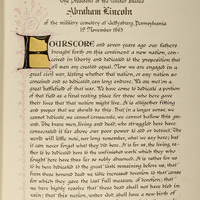 The President of the United States
Abraham Lincoln
at the military cemetery at Gettysburg, Pennsylvania
19 November 1863
FOURSCORE and seven years ago our fathers
brought forth on this continent a new nation, con-
ceived in liberty and dedicated to the proposition that
all men are created equal. Now we are engaged in a
great civil war, testing whether that nation, or any nation so
conceived and so dedicated, can long endure. We are met on a
great battlefield of that war. We have come to dedicate a
portion of that field as a final resting place for those who here gave
their lives that that nation might live. It is altogether fitting
and proper that we should do this. But, in a larger sense, we
cannot dedicate, we cannot consecrate, we cannot hallow this
ground. The brave men, living and dead, who struggled here have
consecrated it far above our poor power to add or detract. The
world will little note, nor long remember, what we say here; but it
can never forget what they did here. It is for us, the living,
to be dedicated here to the unfinished work which they who
fought here have thus far so nobly advanced. It is rather for us
to be here dedicated to the great task remaining before us, that
from these honored dead we take increased devotion to that cause
for which they gave the last full measure of devotion; that
we here highly resolve that these dead shall not have died in
vain; that this nation, under God, shall have a new birth of